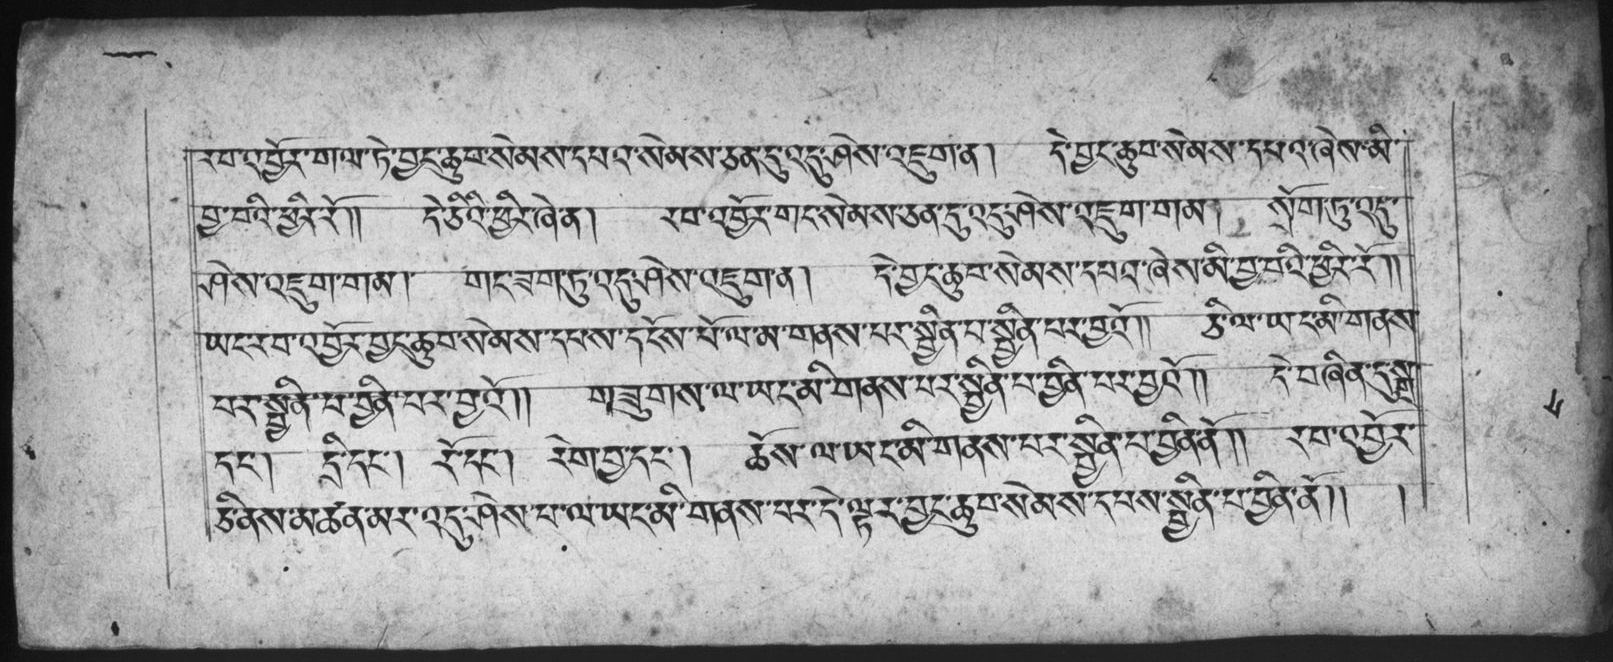 རབ་འབྱོར་གལ་ཏེ་བྱང་ཆུབ་སེམས་དཔའ་སེམས་ཅན་དུ་འདུ་ཤེས་འཇུག་ན།  དེ་བྱང་ཆུབ་སེམས་དཔའ་ཞེས་མི་
བྱ་བའི་ཕྱིར་རོ།། དེ་ཅིའི་ཕྱིར་ཞེ་ན། རབ་འབྱོར་གང་སེམས་ཅན་དུ་འདུ་ཤེས་འཇུག་གམ། སྲོག་ཏུ་འདུ་
ཤེས་འཇུག་གམ། གང་ཟག་ཏུ་འདུ་ཤེས་འཇུག་ན། དེ་བྱང་ཆུབ་སེམས་དཔའ་ཞེས་མི་བྱ་བའི་ཕྱིར་རོ།།
ཡང་རབ་འབྱོར་བྱང་ཆུབ་སེམས་དཔས་དངོས་པོ་ལ་མ་གནས་པར་སྦྱིན་པ་སྦྱིན་པར་བྱའོ།། ཅི་ལ་ཡང་མི་གནས
པར་སྦྱིན་པ་བྱིན་པར་བྱའོ།། གཟུགས་ལ་ཡང་མི་གནས་པར་སྦྱིན་པ་བྱིན་པར་བྱའོ།། དེ་བཞིན་དུ་སྒྲ་
དང་། དྲི་དང་། རོ་དང་། རེག་བྱ་དང་། ཆོས་ལ་ཡང་མི་གནས་པར་སྦྱིན་པ་བྱིན་ནོ།། རབ་འབྱོར་
ཅི་ནས་མཚན་མར་འདུ་ཤེས་པ་ལ་ཡང་མི་གནས་པར་དེ་ལྟར་བྱང་ཆུབ་སེམས་དཔས་སྦྱིན་པ་བྱིན་ནོ།། །